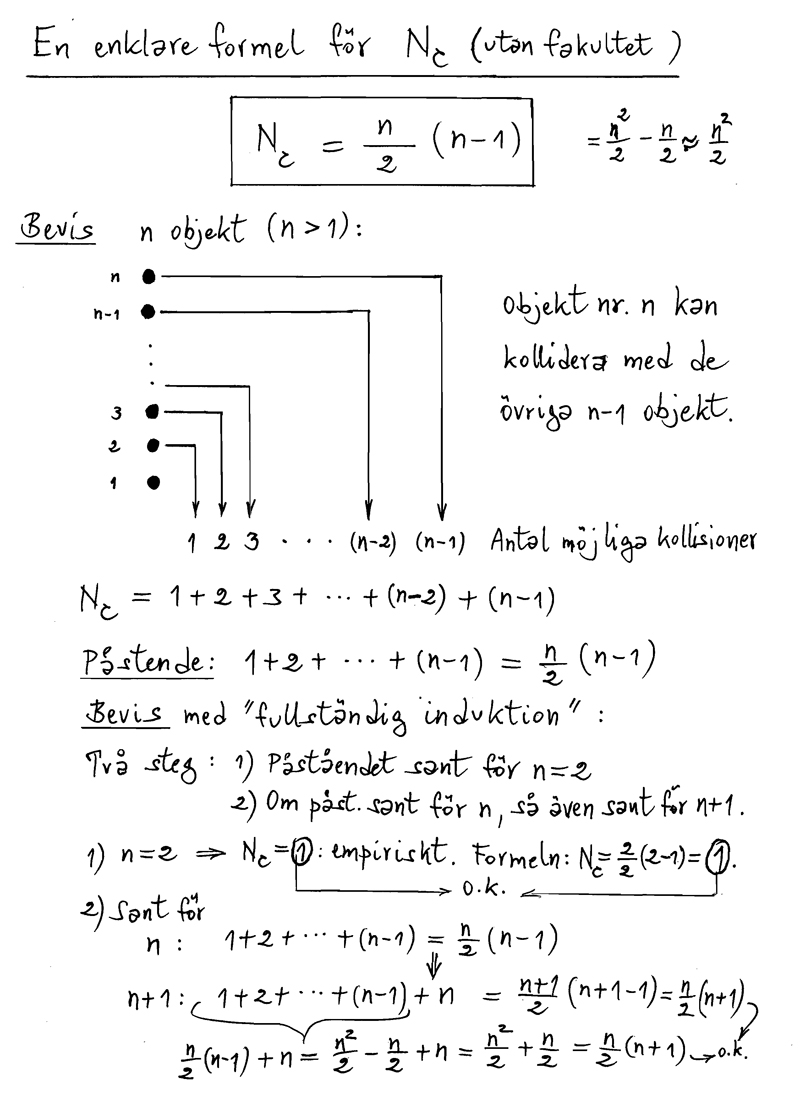 En enklare formel för N_c (utan fakultet)
N_c = n/2 (n-1) = n²/2 - n/2 ≈ n²/2
Bevis n objekt (n > 1):
n
n-1
3
2
1
Objekt nr. n kan
kollidera med de
övriga n-1 objekt.
1 2 3 · · · (n-2) (n-1) Antal möjliga kollisioner
N_c = 1+2+3+ ··· +(n-2)+(n-1)
Påstende: 1+2+ ··· +(n-1) = n/2 (n-1)
Bevis med "fullständig induktion" :
Två steg : 1) Påståendet sant för n=2
2) Om påst. sant för n, så även sant för n+1.
1) n=2 ⇒ N_c=1: empiriskt. Formeln: N_c=2/2(2-1)=1.
o.k.
2) Sant för
n : 1+2+ ··· +(n-1) = n/2 (n-1)
⇓
n+1: 1+2+ ··· +(n-1)+n = n+1/2 (n+1-1)=n/2(n+1)
n/2(n-1)+n = n²/2 - n/2 + n = n²/2 + n/2 = n/2(n+1) → o.k.